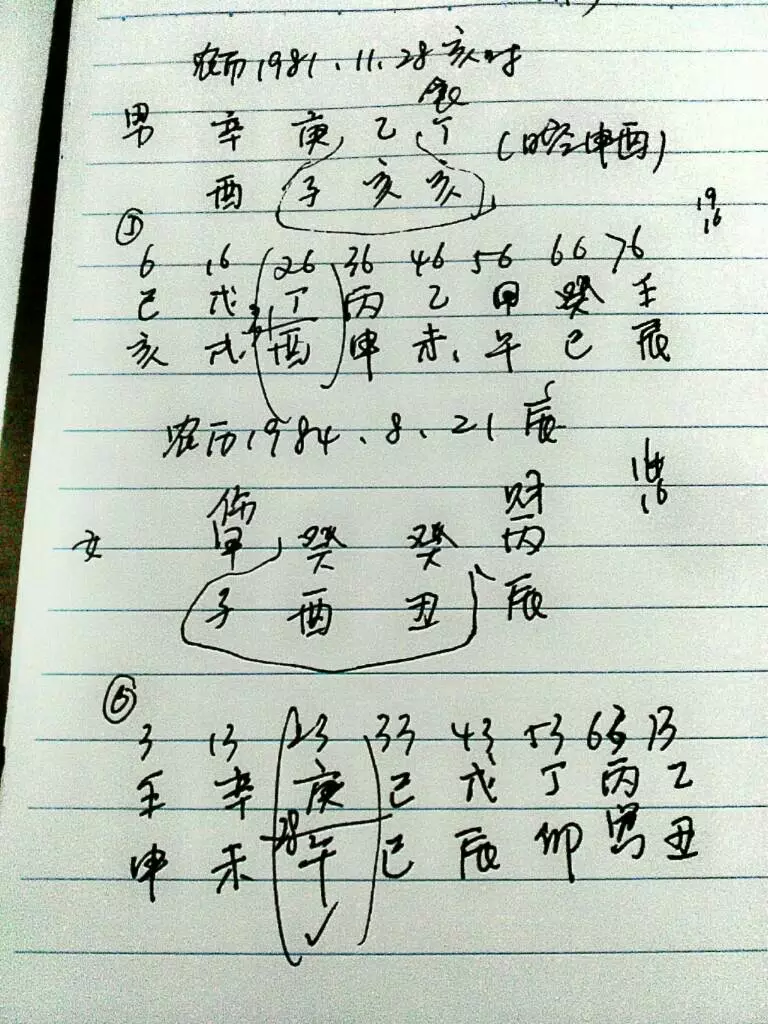 农历1981.11.28亥时
食
男 辛 庚 乙 丁 (时空申酉)
酉 子 亥 亥
①
6 16 26 36 46 56 66 76
己 戊 丁 丙 乙 甲 癸 壬
31
亥 戌 酉 申 未 午 巳 辰
19
16
农历1984.8.21辰
伤 财
女 甲 癸 癸 丙
子 酉 丑 辰
16
⑥
3 13 23 33 43 53 63 73
壬 辛 庚 己 戊 丁 丙 乙
28
申 未 午 巳 辰 卯 寅 丑